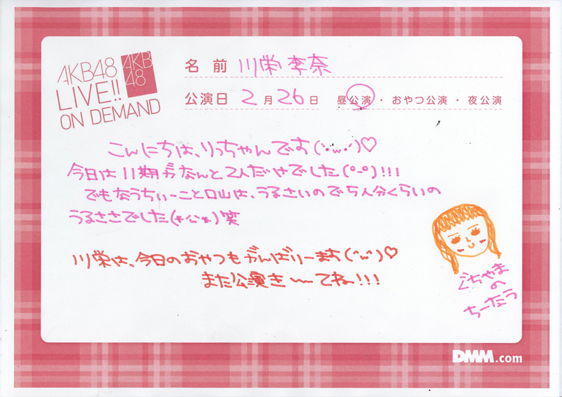 AKB48
LIVE!!
ON DEMAND
AKB
48
名前 川栄李奈
公演日 2月26日 昼公演・おやつ公演・夜公演
こんにちは、りっちゃんです(´･ω･`)♡
今日は11期がなんと2人だけでした(°-°)!!!
でもなうちぃーこと口山は、うるさいので5人分くらいの
うるささでした(*^^*)笑
川栄は、今日のおやつもがんばりーます(^ω^)♡
また公演き〜てね!!!
ぐちやま
の
ちーなう
DMM.com